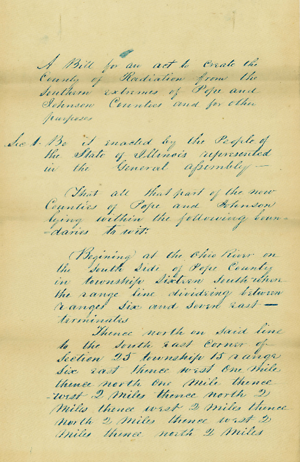 A Bill for an act to create the
County of Radiation from the
Southern extremes of Pope and
Johnson Counties and for other
purposes
Sec 1- Be it enacted by the People of
the State of Illinois represented
in the General assembly -
That all that part of the new
Counties of Pope and Johnson
lying within the following boun-
daries to wit:
Begining at the Ohio River on
the South Side of Pope County
in township Sixteen South when
the range line dividing between
ranges Six and Seven east -
terminates
Thence north on said line
to the South east corner of
Section 25 township 15 range
Six east thence west one mile
thence north one mile thence
west 2 miles thence north 2
miles thence west 2 miles thence
north 2 miles thence west 2
miles thence north 2 miles